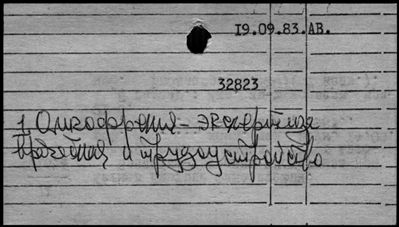 19.09.83.АВ.
32823
1 Олигофрения - экспертиза
врачебная и трудоустройство